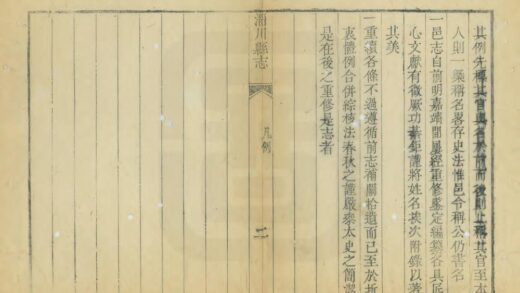 其例先標其官與名於前而後則止稱其官至本
人則一槩稱名畧存史法惟邑令稱公仍書名
一邑志自前明嘉靖間屢經重修鑒定編纂各具匠
心文獻有徵厥功甚鉅謹將姓名挨次附錄以著
其美
一重續各條不過遵循前志補闕拾遺而已至於折
衷體例合併綜核法春秋之謹嚴叅太史之簡潔
是在後之重修是志者
淄川縣志
凡例
二